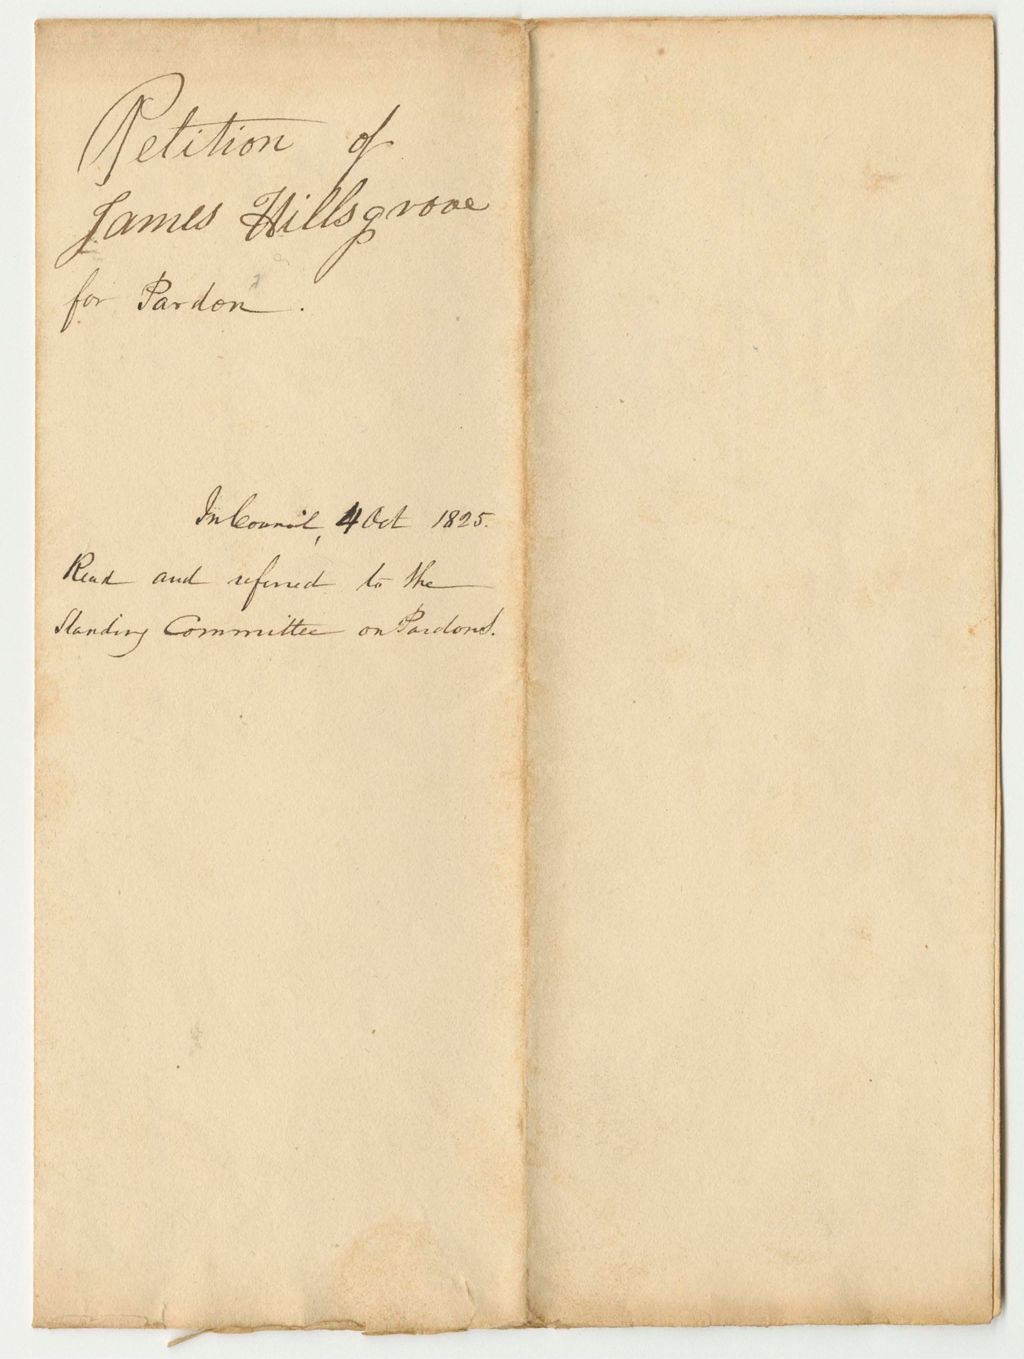 Petition of
James Hillsgrove
for Pardon.
In Council, 4 Oct 1825.
Read and referred to the
Standing Committee on Pardons.